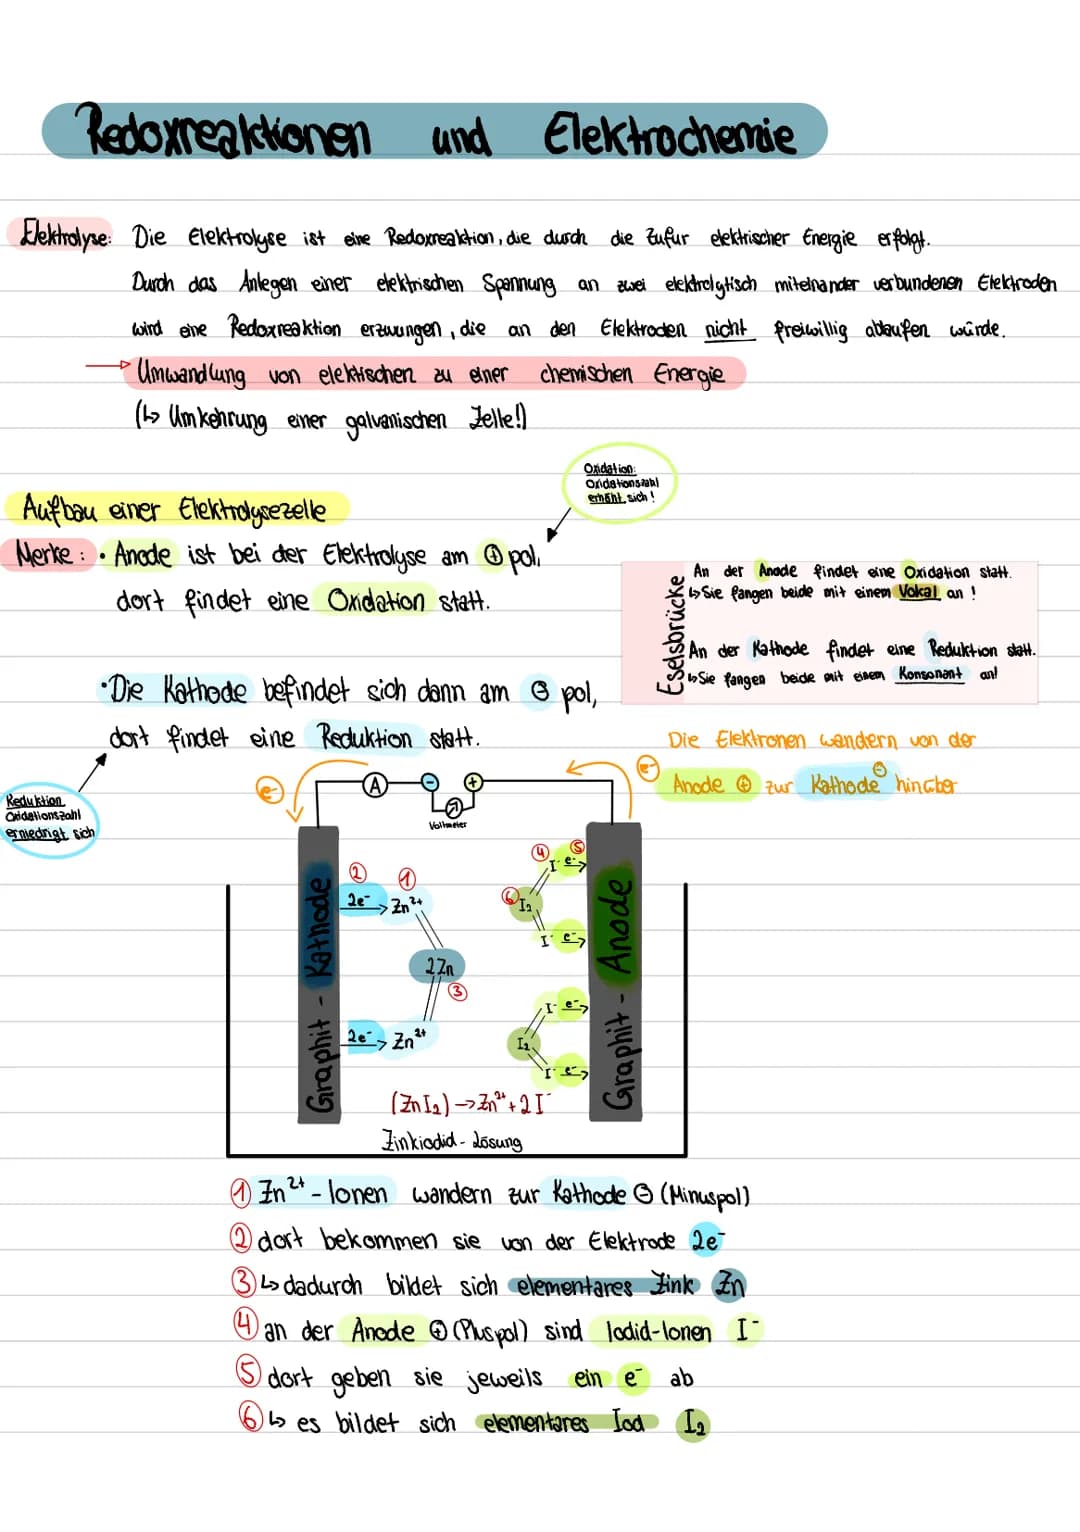 Redoxreaktionen und Elektrochemie
Elektrolyse: Die Elektrolyse ist eine Redoxreaktion, die durch die Zufur elektrischer Energie erfolgt.
Durch das Anlegen einer elektrischen Spannung an zwei elektrolytisch miteinander verbundenen Elektroden
wird eine Redoxreaktion erzwungen, die an den Elektroden nicht freiwillig ablaufen würde.
→ Umwandlung von elektischen zu einer chemischen Energie
(↳ Umkehrung einer galvanischen Zelle!)
Oxidation:
Oxidationszahl
erhöht sich!
Aufbau einer Elektrolysezelle
Merke: • Anode ist bei der Elektrolyse am ⊕ pol,
dort findet eine Oxidation statt.
Eselsbrücke
An der Anode findet eine Oxidation statt.
↳ Sie fangen beide mit einem Vokal an!
An der Kathode findet eine Reduktion statt.
↳ Sie fangen beide mit einem Konsonant an!
• Die Kathode befindet sich dann am ⊖ pol,
dort findet eine Reduktion statt.
Reduktion
Oxidationszahl
erniedrigt sich
Die Elektronen wandern von der
Anode ⊕ zur Kathode ⊖ hinüber
e⁻
A
−
+
Voltmeter
e⁻
Graphit - Kathode
② ①
2e⁻ → Zn²⁺
2Zn
③
2e⁻ → Zn²⁺
④ ⑤
I⁻ e⁻ →
⑥ I₂
I⁻ e⁻ →
I⁻ e⁻ →
I₂
I⁻ e⁻ →
Graphit - Anode
(ZnI₂) → Zn²⁺ + 2I⁻
Zinkiodid - Lösung
① Zn²⁺ - Ionen wandern zur Kathode ⊖ (Minuspol)
② dort bekommen sie von der Elektrode 2e⁻
③ ↳ dadurch bildet sich elementares Zink Zn
④ an der Anode ⊕ (Pluspol) sind Iodid-Ionen I⁻
⑤ dort geben sie jeweils ein e⁻ ab
⑥ ↳ es bildet sich elementares Iod I₂